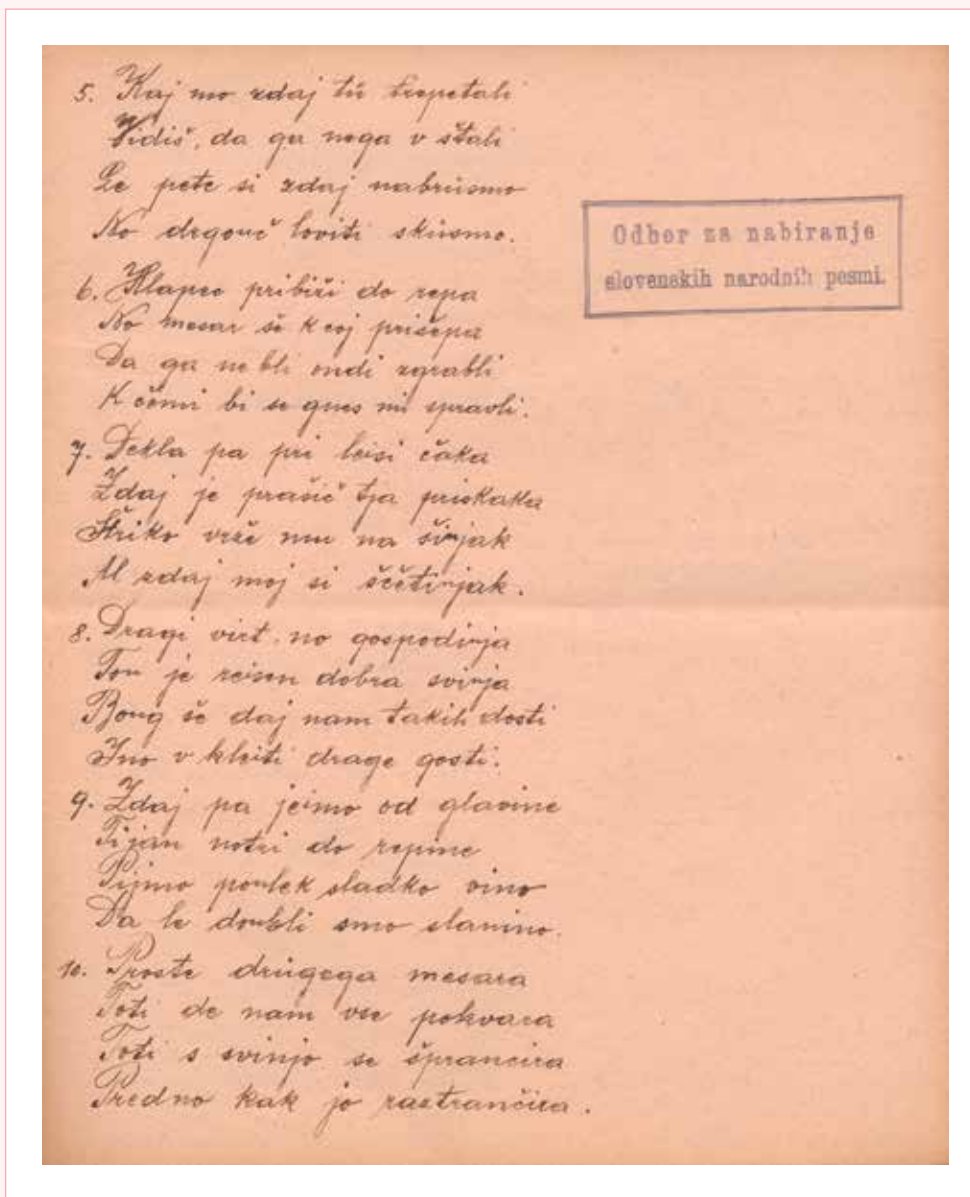 5. Kaj mo zdaj tü trepetali
Vidiš, da ga nega v štali
Le pete si zdaj nabrüsmo
No drgouč loviti sküsmo.
Odbor za nabiranje
slovenskih narodnih pesmi.
6. Hlapec pribiži do repa
No mesar še k coj prišepa
Da ga ne bli ondi zgrabli
K čemi bi se gnes mi spravli.
7. Dekla pa pri leisi čaka
Zdaj je prašič tja priskaka
Štriko vrže mu na šinjak
Al zdaj moj si ščetinjak.
8. Dragi virt no gospodinja
Tou je reisen dobra svinja
Boug še daj nam takih dosti
Ino v kleiti drage gosti.
9. Zdaj pa jeimo od glavine
Tijan notri do repine
Pijmo poulek sladko vino
Da le doubli smo slanino.
10. Proste drügega mesara
Toti de nam vse pokvara
Toti s svinjo se šprancira
Predno kak jo rastrančira.